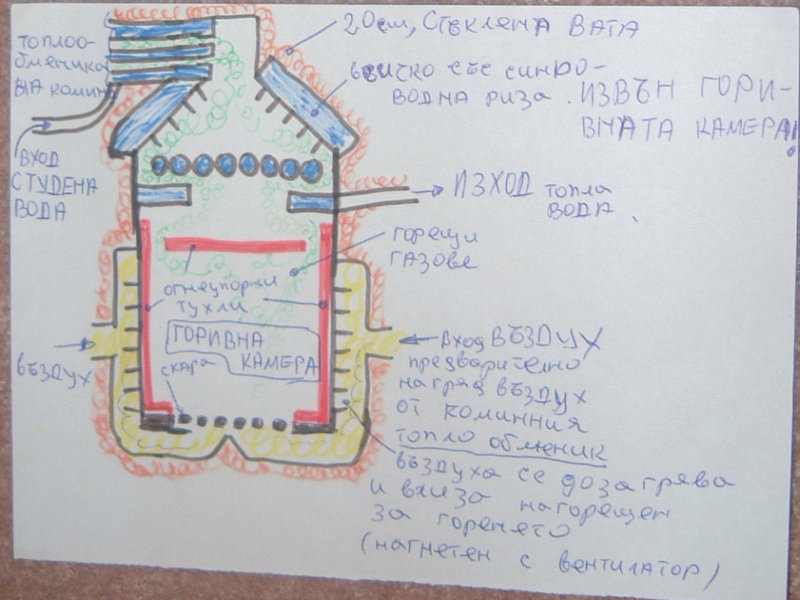 20см, Стъклена вата
топлоо-
обменика
на комин
всичко със синьо -
водна риза. ИЗВЪН ГОРИ-
ВНАТА КАМЕРА!
ВХОД
СТУДЕНА
ВОДА
ИЗХОД топла
вода
горещи
газове
огнеупорни
тухли
ГОРИВНА
КАМЕРА
скара
въздух
Вход ВЪЗДУХ
предварително
нагрят въздух
от коминния
топло обменик
въздуха се дозагрява
и влиза нагорещен
за горенето
(нагнетен с вентилатор)